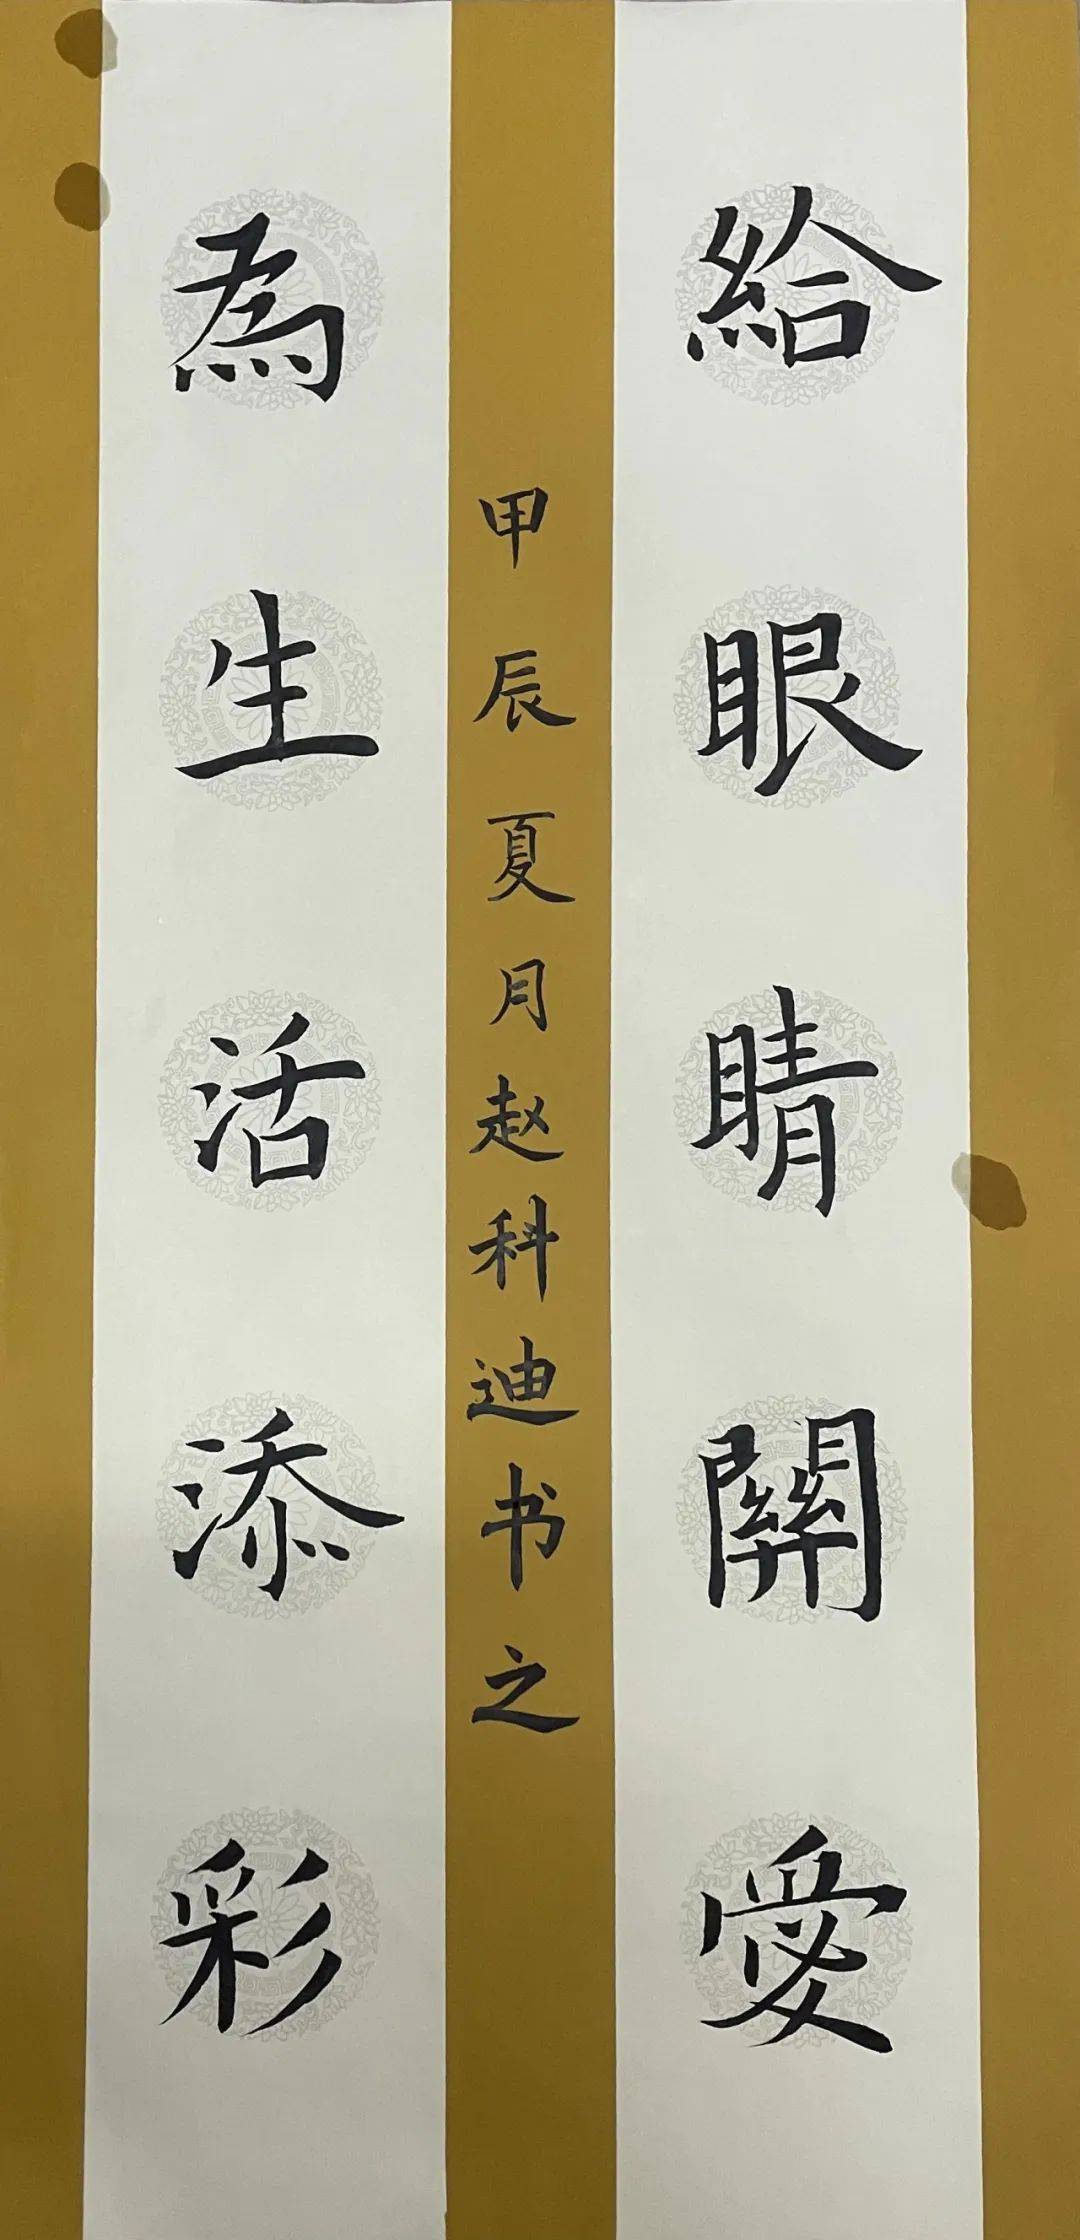 給眼睛關愛
為生活添彩
甲辰夏月赵科迪书之